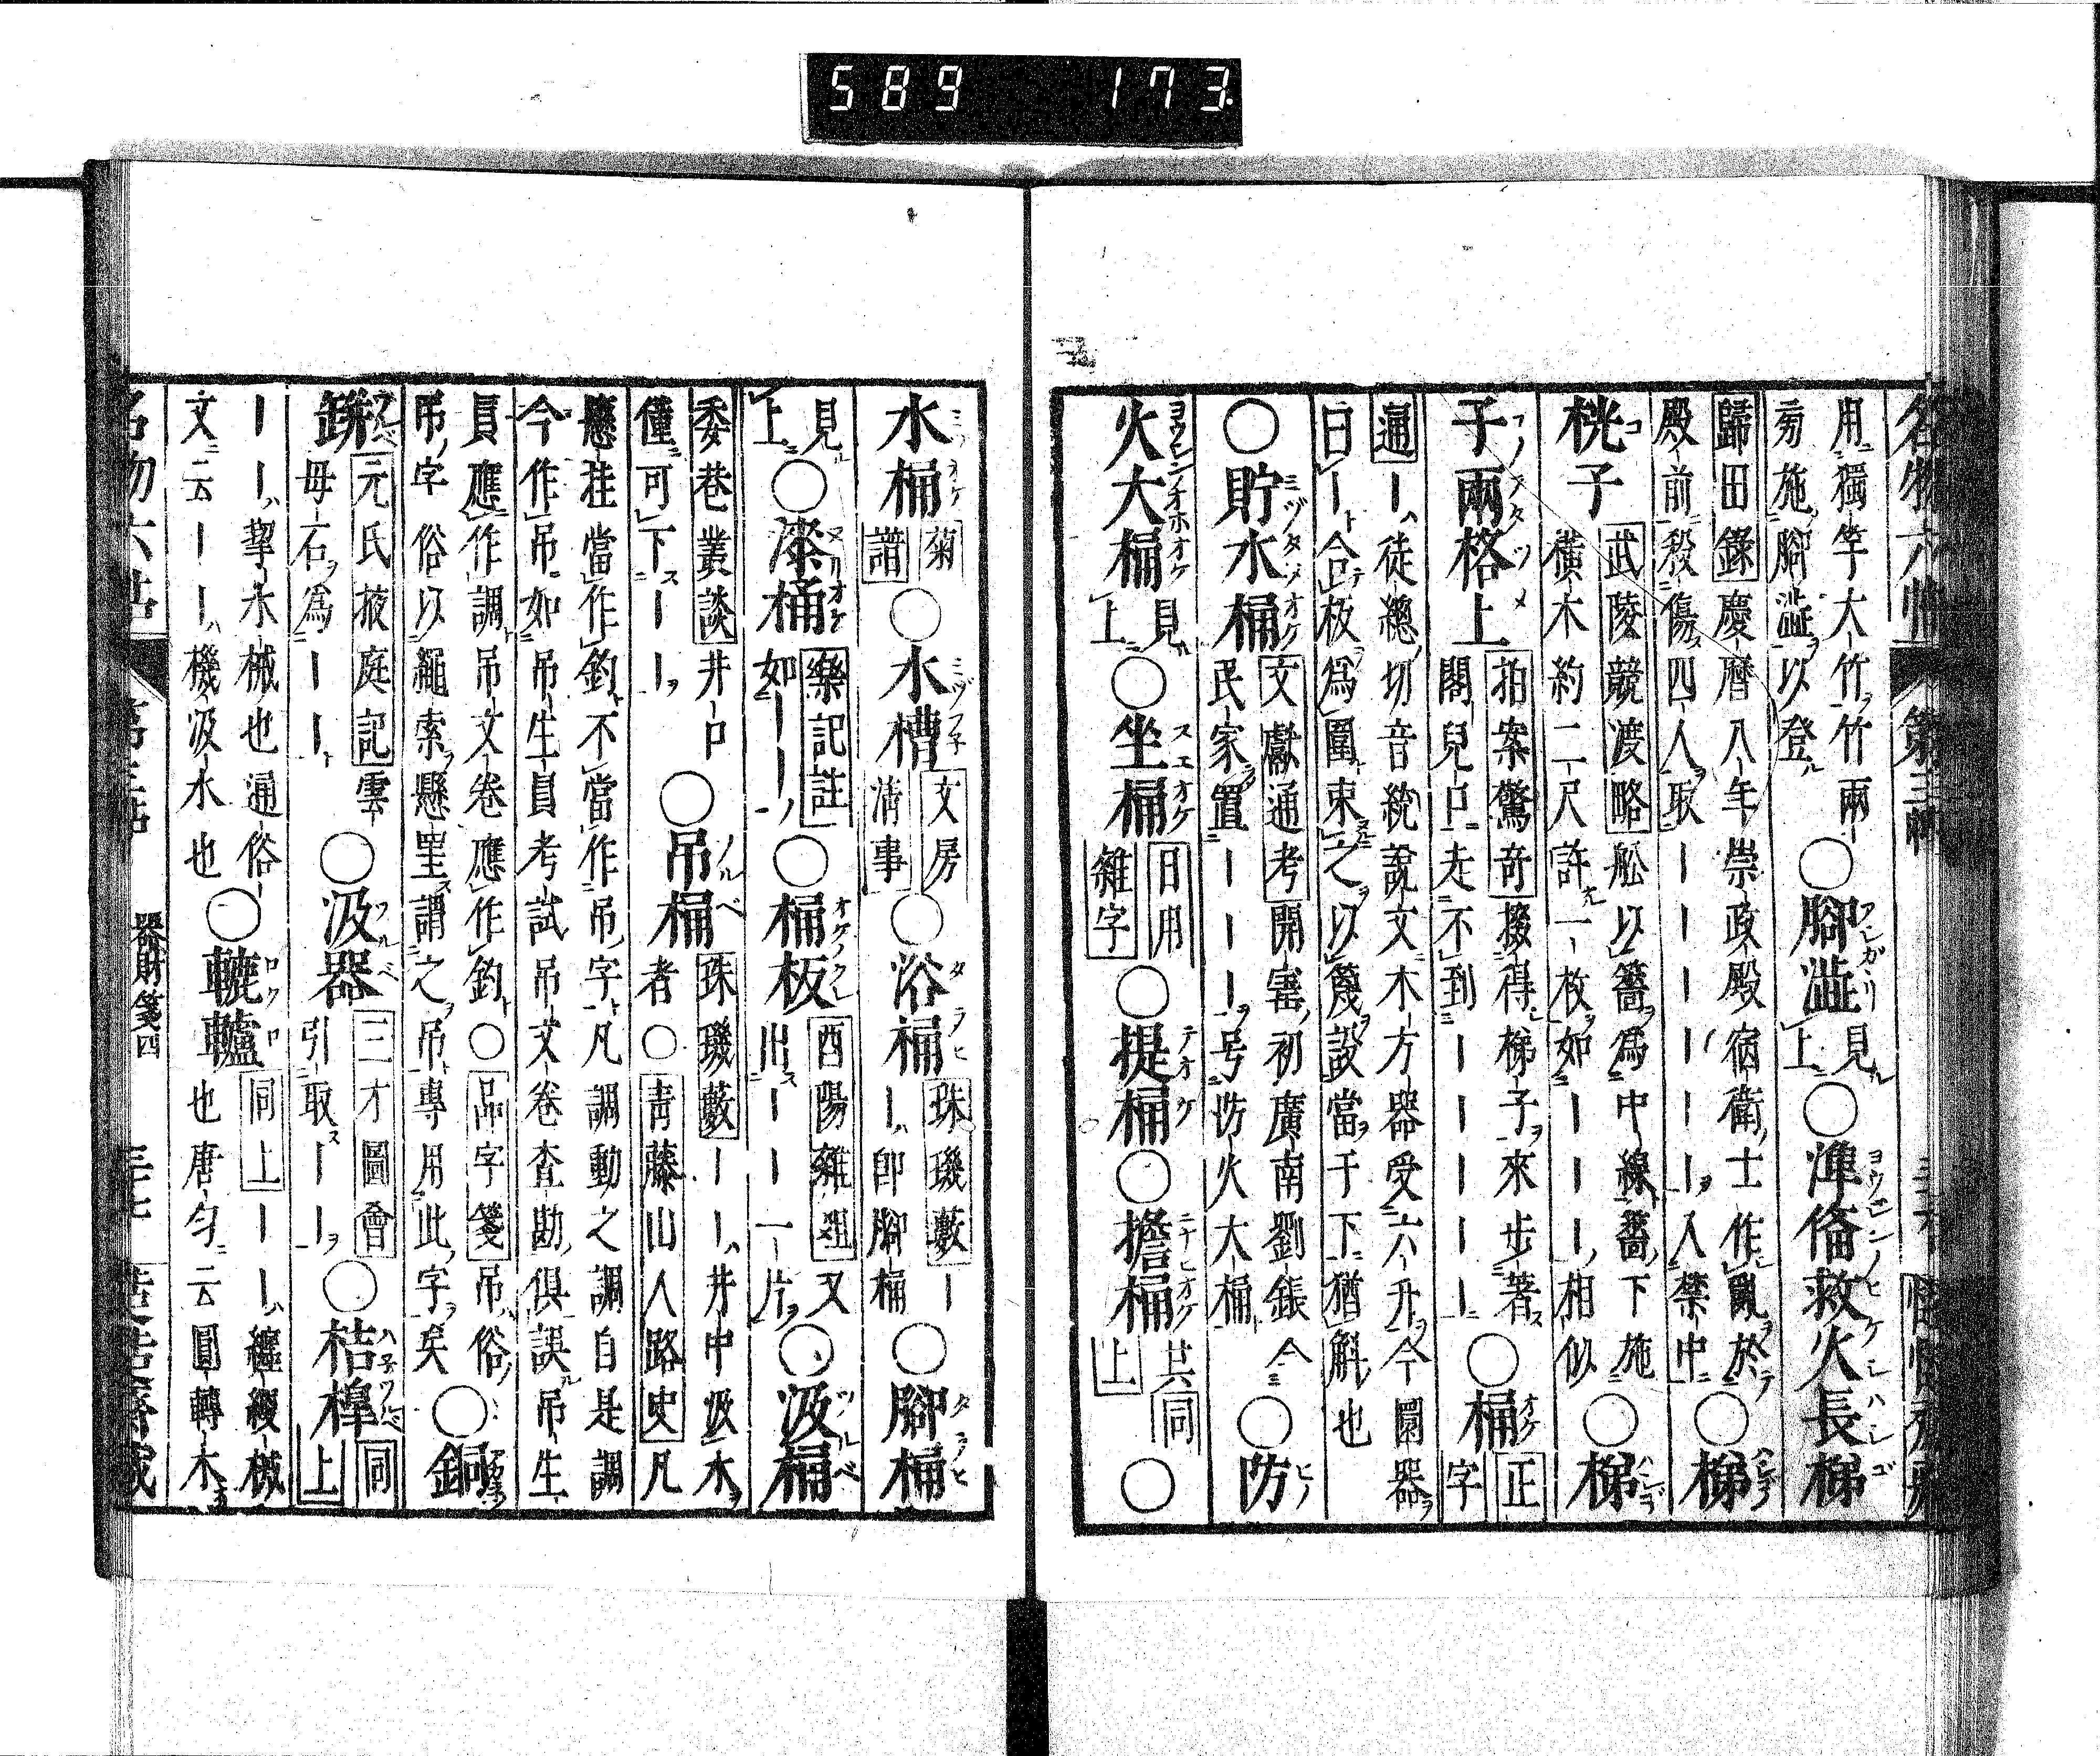 589 173
名物六帖 第三帖
用獨竿大竹竹兩
旁施脚澁以登
○脚澁 見上 ○準備救火長梯
歸田錄 慶曆八年崇政殿宿衛士作亂於
殿前殺傷四人取ーーーーーー入禁中
○梯
桄子 武陵競渡略 舩以簥爲中線簥下施
橫木約二尺許一枚如ーーー相似
○梯
子兩格上 拍案驚奇 掇得梯子來步著
閣兒口走不到ーーーーー
○桶 正字
通 ー徒總切音統說文木方器受六升今圜器
曰ー合板爲圍束之以篾設當于下猶斛也
○貯水桶 文獻通考 開寳初廣南劉鋹令
民家置ーーー号防火大桶
○防
火大桶 見上 ○坐桶 日用雜字 ○提桶 ○擔桶 共同上 ○
水桶 菊譜 ○水槽 文房淸事 ○浴桶 珠璣藪 ーー卽脚桶 ○脚桶
見上 ○漆桶 樂記註 如ーー ○桶板 酉陽雜俎 又出ーー一片 ○汲桶
委巷叢談 井口
僅可下ーー
○吊桶 珠璣藪 ーー井中汲水
者○靑藤山人路史 凡
懸挂當作鈞不當作吊字凡調動之調自是調
今作吊如吊生員考試吊文卷查勘俱誤吊生
員應作調吊文卷應作鈞○品字箋 吊俗
吊字俗以繩索懸罣謂之吊專用此字矣
○銅
缾 元氏掖庭記 雲
母石爲ーー
○汲器 三才圖會
引取ーー
○桔橰 同上
ーー挈水械也通俗
文云ーーー機汲水也
○轆轤 同上 ーー纏綆械
也唐勻云圓轉木
名物六帖
器財箋四
三七